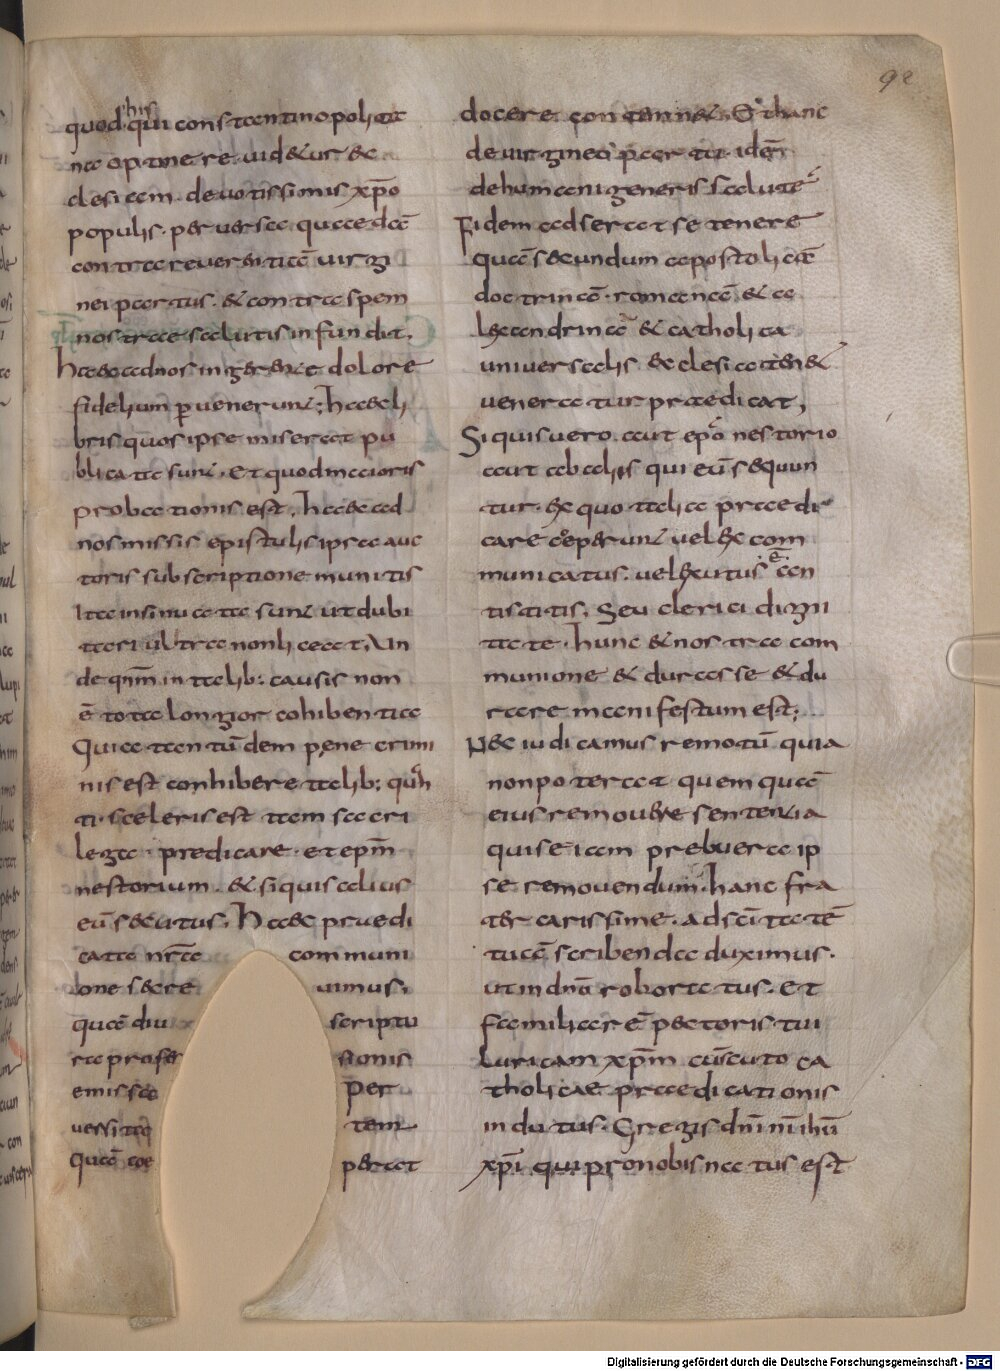 92
quod his qui constantinopolita
na optinere uidetur ec
clesiam. deuotissimis xp̄o
populis. peruersa quaedā
contra reuerentiā uirgi
nei partus. & contra spem
nostrae salutis infundit.
haec ad nos ingerente dolore
fidelium peruenerunt; haec li
bris quos ipse miserat pu
blicata sunt. Et quod maioris
probationis est, haec ad
nos missis epistulis ipsa auc
toris subscriptione munitis
Ita insinuata sunt ut dubi
tari ultra non liceat. Un
de qnm̄ in talib: causis non
ē tota longior cohibentia
Quia tantūdem pene crimi
nis est conhibere talib: quān
ti sceleris est tam sacri
lega predicare. et epm̄
nestorium. & siquis alius
eū secutus. haec praedi
cata nr̄ae communi
one secre uimus.
quā diu scriptu
ra profes sionis
emissa per
uersitatē tem
quā coe perat
docere contemnet. Et hanc
de uirginei partu idē
de humani generis salute
Fidem adserat se tenere
quā secundum apostolicā
doctrinā. romanā & a
lexandrinā & catholica
uniuersalis ecclesia tenet &
ueneratur praedicat,
Siquis uero. aut epō nestorio
aut ab aliis qui eū sequun
tur. ex quo talia praedi
care coeperunt uel excom
municatus. uel exutus ē an
tistitis. Seu clerici digni
tate. hunc & nostra com
munione & durasse & du
rare manifestum est;
Nec iudicamus remotū quia
non poterat quem quā
eius remouere sententia
qui se iam prebuerat ip
se remouendum. hanc fra
ter carissime. ad scītatē
tuā scribenda duximus.
ut in dnō roboratus. et
familiarē pectoris tui
luricam xpm̄ cū scuto ca
tholicae praedicationis
indutus. Gregis dnī nr̄i ihū
xpī qui pro nobis natus est
Digitalisierung gefördert durch die Deutsche Forschungsgemeinschaft - DFG